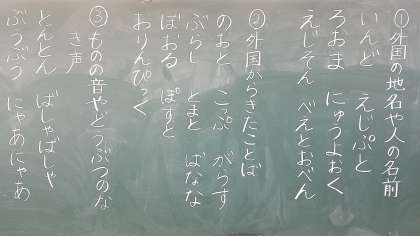 ①外国の地名や人の名前
いんど えじぷと
ろおま にゅうよおく
えじそん べえとおべん
②外国からきたことば
のおと こっぷ がらす
ぶらし とまと ばなな
ぼおる ぽすと
おりんぴっく
③ものの音やどうぶつのな
き声
とんとん ばしゃばしゃ
ぶうぶう にゃあにゃあ